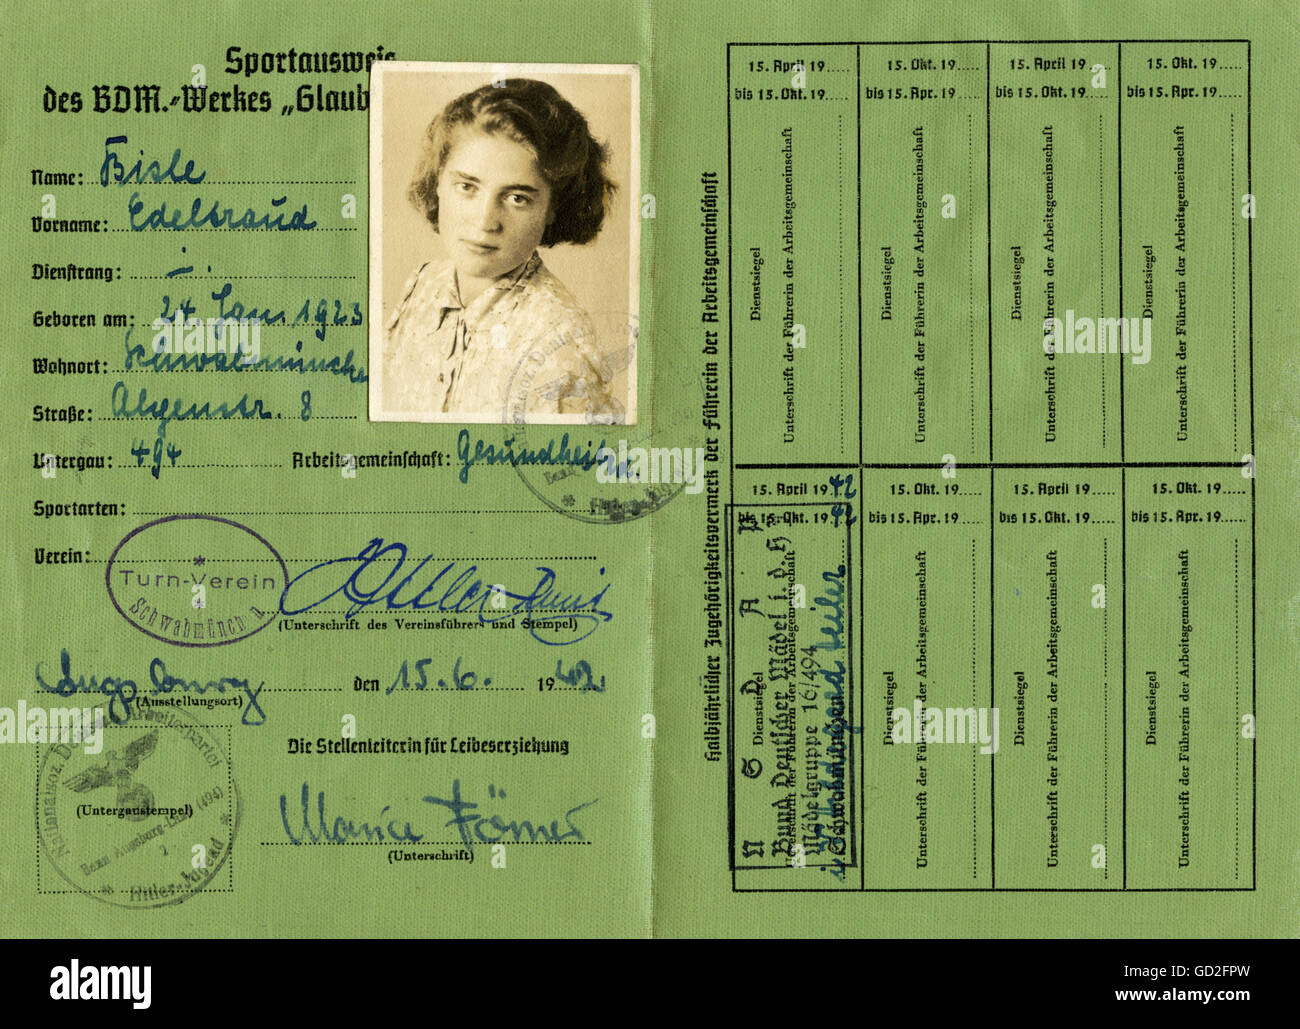 Sportausweis
des BDM.-Werkes „Glaub
Name: Bisle
Vorname: Edeltraud
Dienstrang: —.
Geboren am: 24. Jan. 1923
Wohnort: Schwabmünche
Straße: 8
Untergau: 494 Arbeitsgemeinschaft: Gesundheits
Sportarten:
Verein:
Turn-Verein
Schwabmünch
(Unterschrift des Vereinsführers und Stempel)
den 15.6. 1942
(Ausstellungsort)
Die Stellenleiterin für Leibeserziehung
(Untergaustempel)
Hitler-Jugend
(494)
(Unterschrift)
Halbjährlicher Zugehörigkeitsvermerk der Führerin der Arbeitsgemeinschaft
15. April 19..... 15. Okt. 19..... 15. April 19..... 15. Okt. 19.....
bis 15. Okt. 19..... bis 15. Apr. 19..... bis 15. Okt. 19..... bis 15. Apr. 19.....
Dienstsiegel Dienstsiegel Dienstsiegel Dienstsiegel
Unterschrift der Führerin der Arbeitsgemeinschaft Unterschrift der Führerin der Arbeitsgemeinschaft Unterschrift der Führerin der Arbeitsgemeinschaft Unterschrift der Führerin der Arbeitsgemeinschaft
15. April 1942 15. Okt. 19..... 15. April 19..... 15. Okt. 19.....
bis 15. Okt. 1942 bis 15. Apr. 19..... bis 15. Okt. 19..... bis 15. Apr. 19.....
Dienstsiegel Dienstsiegel Dienstsiegel Dienstsiegel
Unterschrift der Führerin der Arbeitsgemeinschaft Unterschrift der Führerin der Arbeitsgemeinschaft Unterschrift der Führerin der Arbeitsgemeinschaft Unterschrift der Führerin der Arbeitsgemeinschaft
N S D A P
Bund Deutscher Mädel i. d. H
Mädelgruppe 16/494
Schwabmünchen
alamy
alamy stock photo
GD2FPW
www.alamy.com